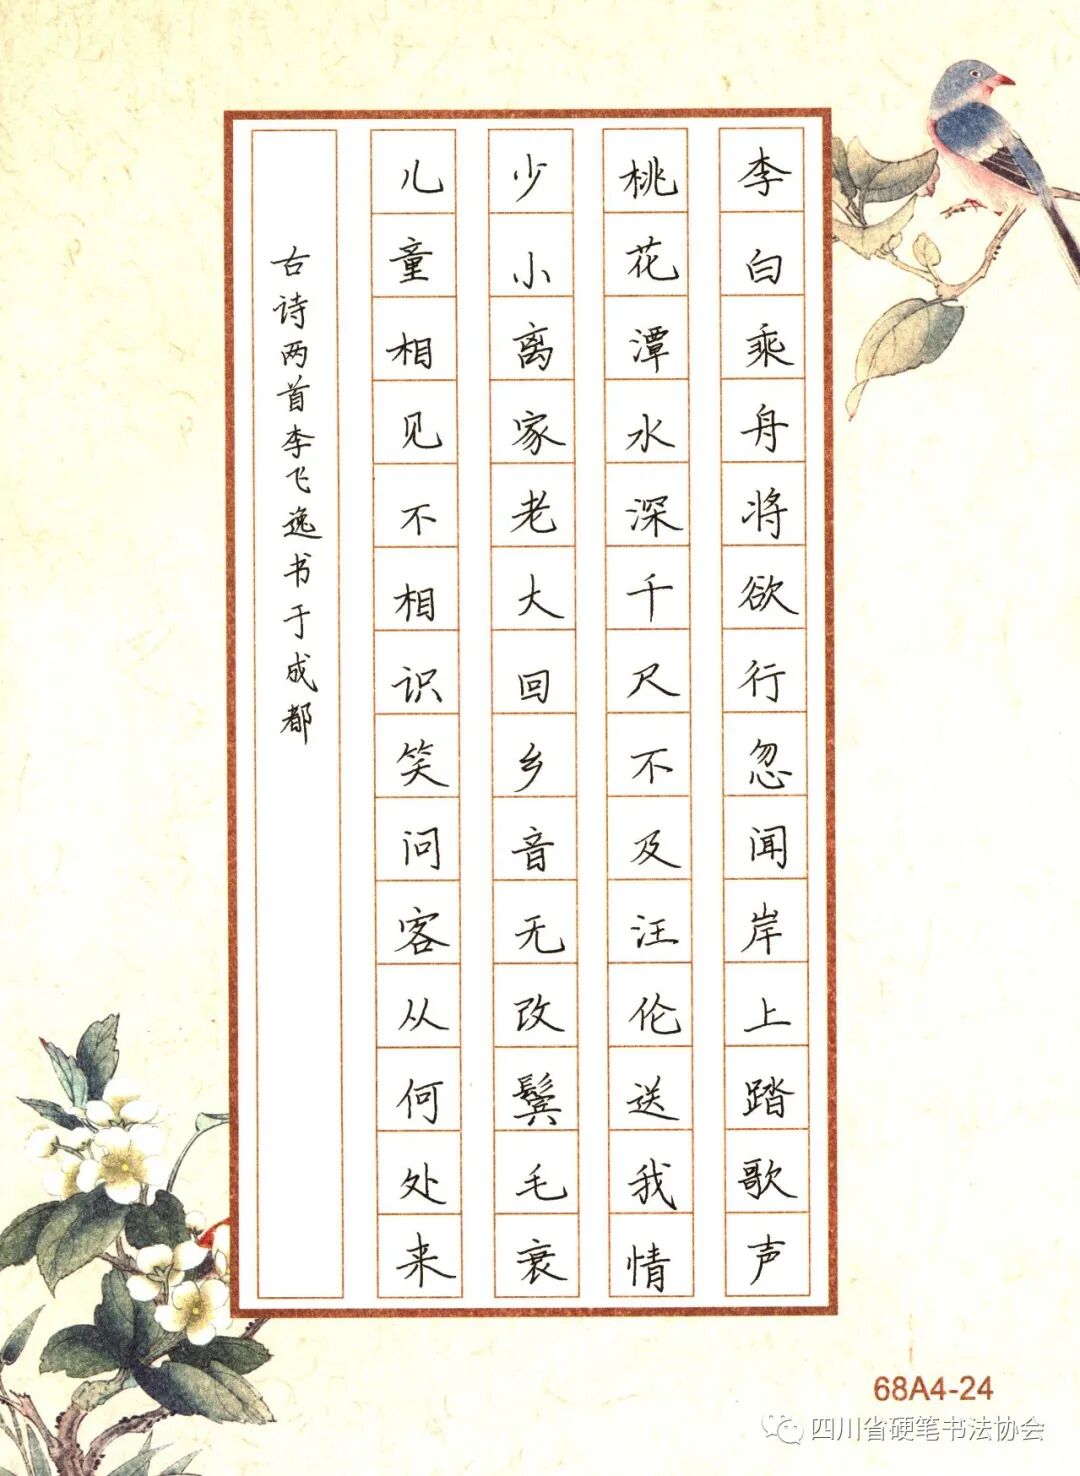 李白乘舟将欲行忽闻岸上踏歌声
桃花潭水深千尺不及汪伦送我情
少小离家老大回乡音无改鬓毛衰
儿童相见不相识笑问客从何处来
古诗两首李飞逸书于成都
68A4-24
四川省硬笔书法协会